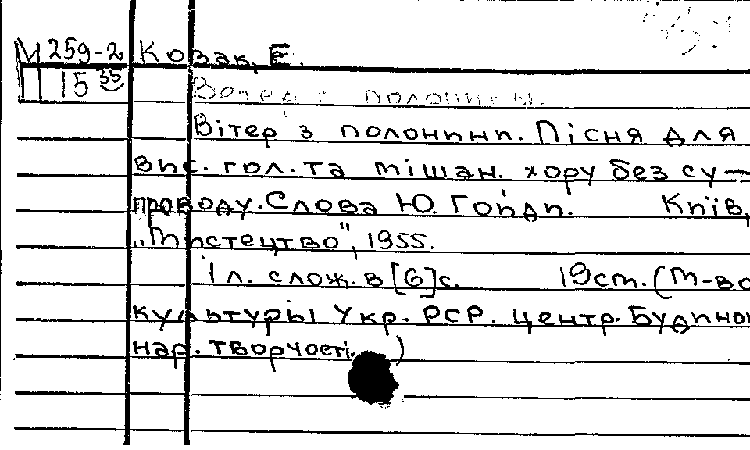 М 259-2 Козак, Е.
П 15 35
Вітер з полонини.
Вітер з полонини. Пісня для
вис. гол. та мішан. хору без су-
проводу. Слова Ю. Гойди. Київ,
„Мистецтво", 1955.
1 л. слож. в [6] с. 19 см. (М-во
культуры Укр. РСР. Центр. Будинок
нар. творчості. )